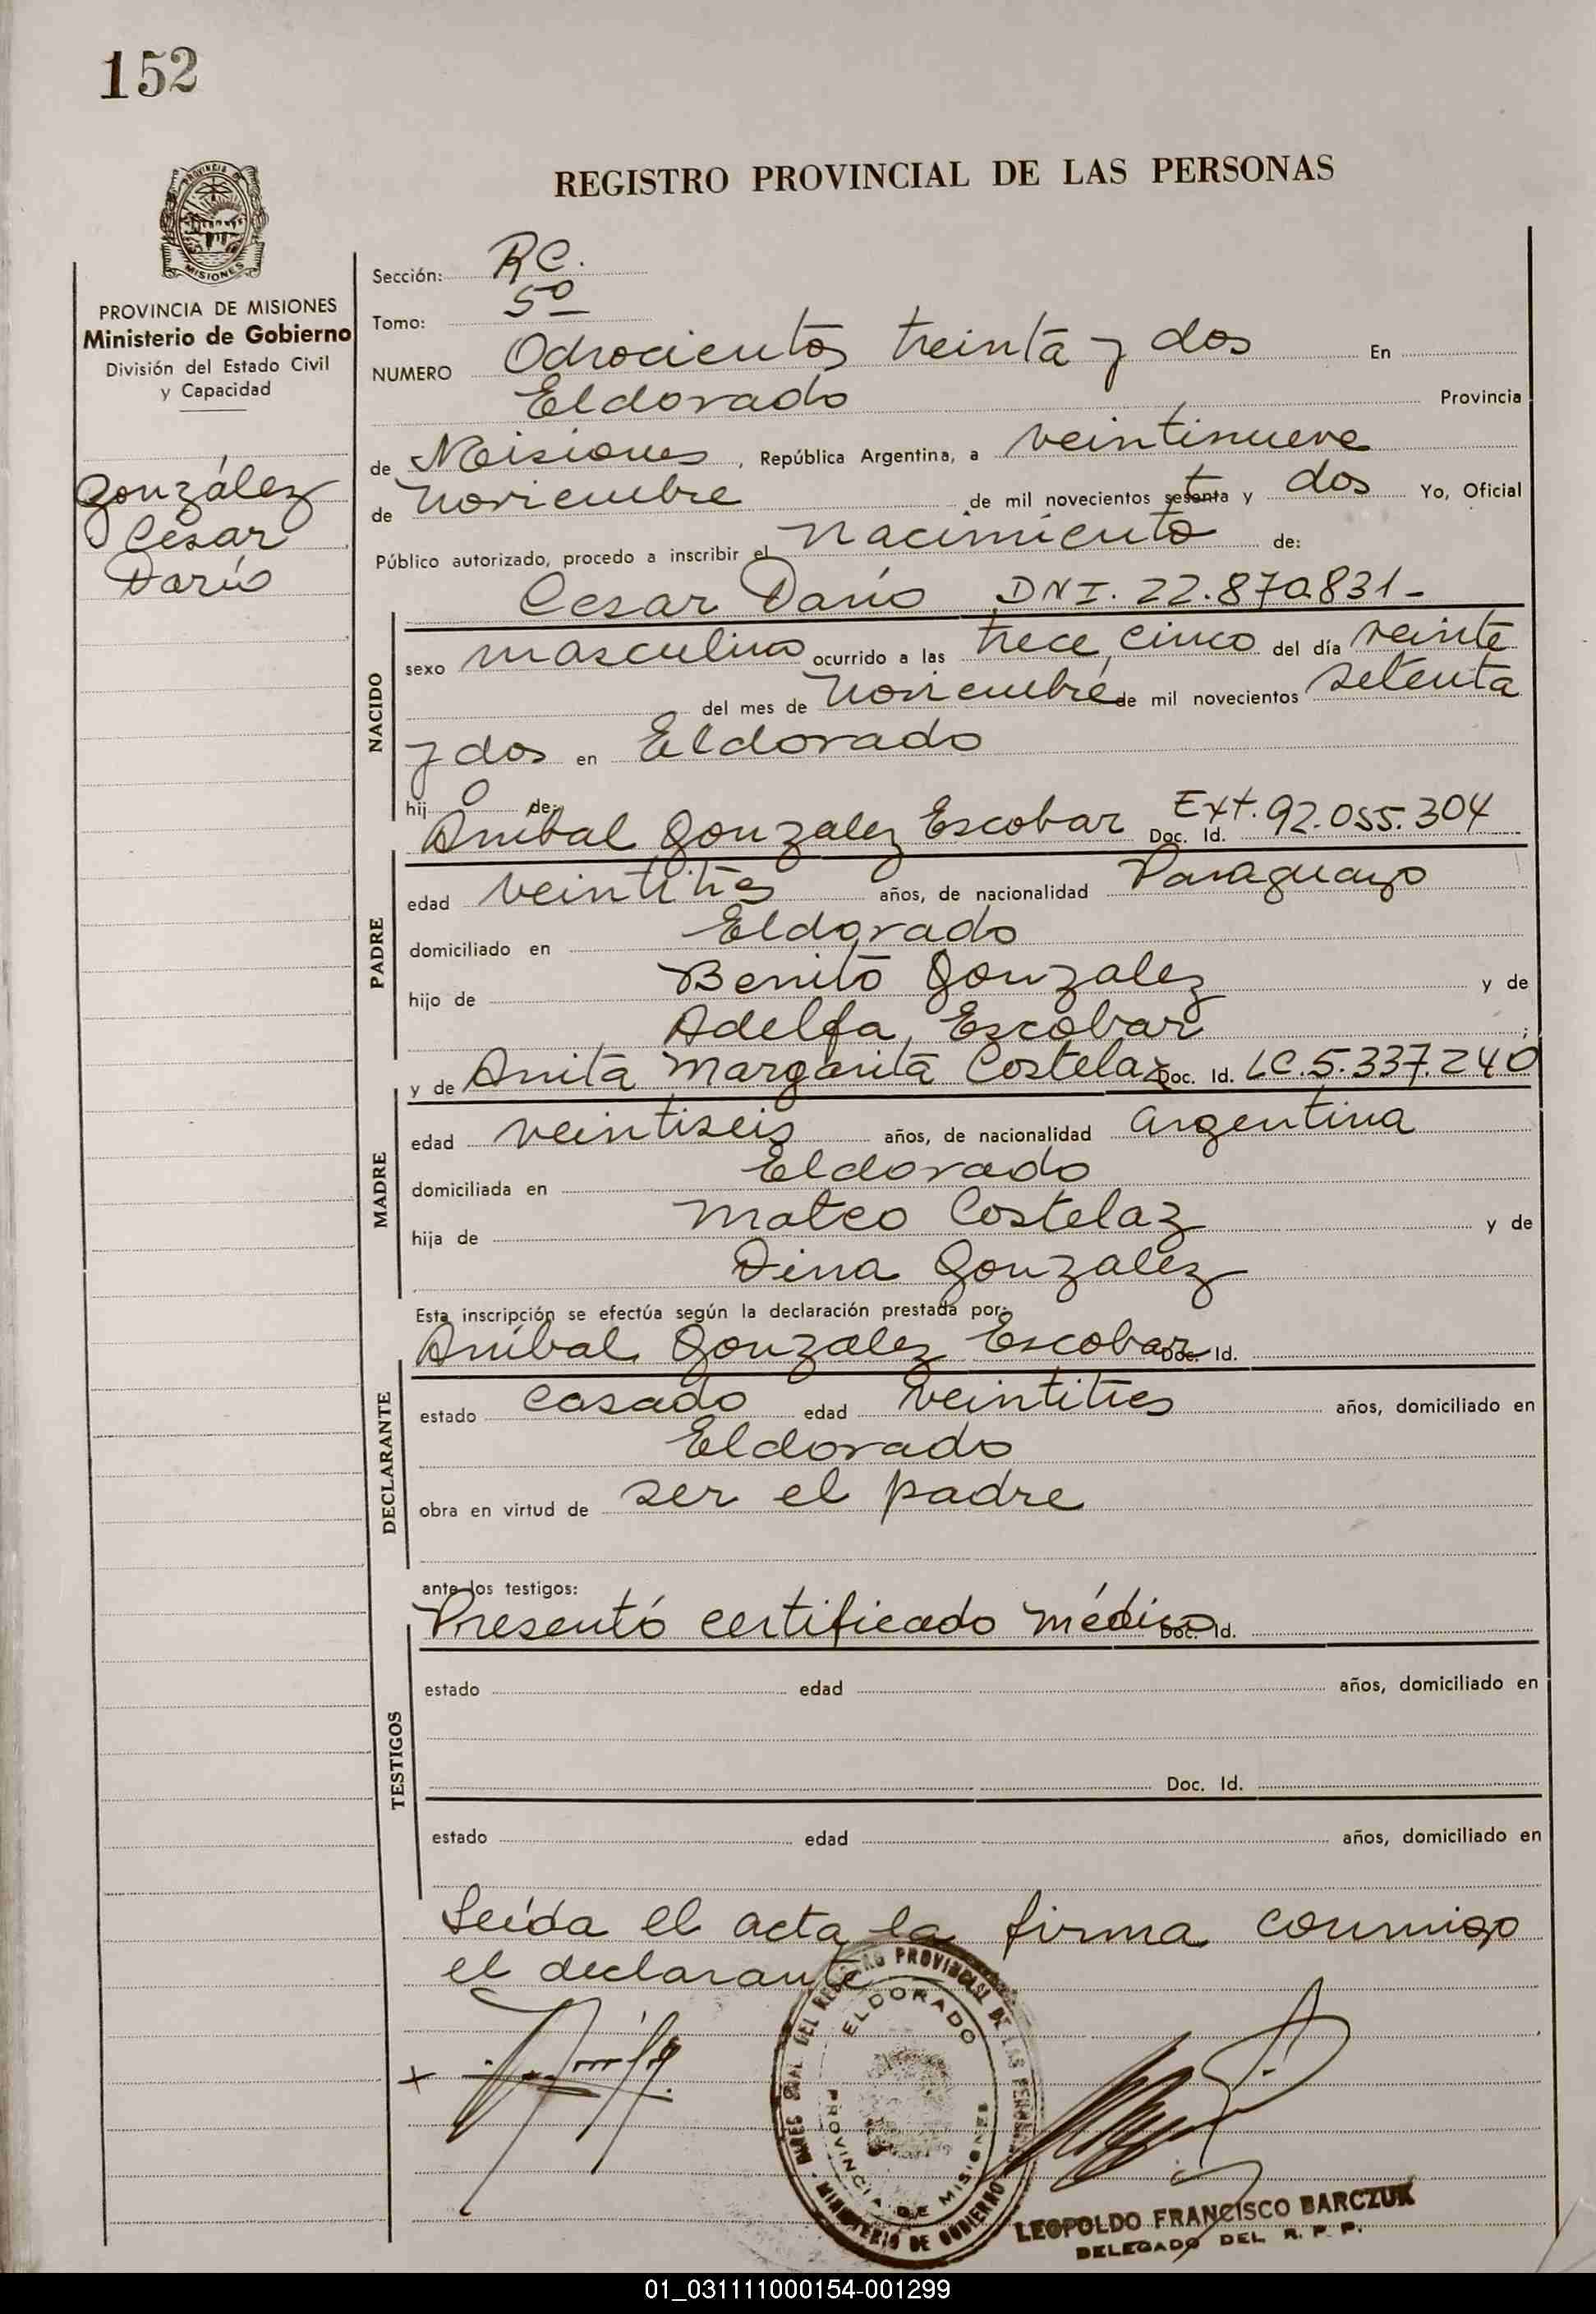 152
REGISTRO PROVINCIAL DE LAS PERSONAS
MISIONES
PROVINCIA DE MISIONES
Ministerio de Gobierno
División del Estado Civil
y Capacidad
González
Cesar
Darío
Sección: RC.
Tomo: 5º
NUMERO Ochocientos treinta y dos En
Eldorado Provincia
de Misiones, República Argentina, a veintinueve
de noviembre de mil novecientos setenta y dos Yo, Oficial
Público autorizado, procedo a inscribir el nacimiento de:
Cesar Darío DNI. 22.870.831-
NACIDO
sexo masculino ocurrido a las trece, cinco del día veinte
del mes de noviembre de mil novecientos setenta
y dos en Eldorado
hij o de:
Aníbal Gonzalez Escobar Doc. Id. Ext. 92.055.304
PADRE
edad veintitres años, de nacionalidad Paraguayo
domiciliado en Eldorado
hijo de Benito Gonzalez y de
Adelfa Escobar ;
y de Anita Margarita Costelaz Doc. Id. LC.5.337.240
MADRE
edad veintiseis años, de nacionalidad argentina
domiciliada en Eldorado
hija de Mateo Costelaz y de
Dina Gonzalez
Esta inscripción se efectúa según la declaración prestada por:
Aníbal Gonzalez Escobar Doc. Id.
DECLARANTE
estado casado edad veintitres años, domiciliado en
Eldorado
obra en virtud de ser el padre
ante los testigos:
Presentó certificado médico Doc. Id.
TESTIGOS
estado edad años, domiciliado en
Doc. Id.
estado edad años, domiciliado en
Leída el acta la firma conmigo
el declarante
DEL REGISTRO PROVINCIAL DE LAS PERSONAS
ELDORADO
PROVINCIA DE MISIONES
MINISTERIO DE GOBIERNO
LEOPOLDO FRANCISCO BARCZUK
DELEGADO DEL R. P. P.
01_031111000154-001299